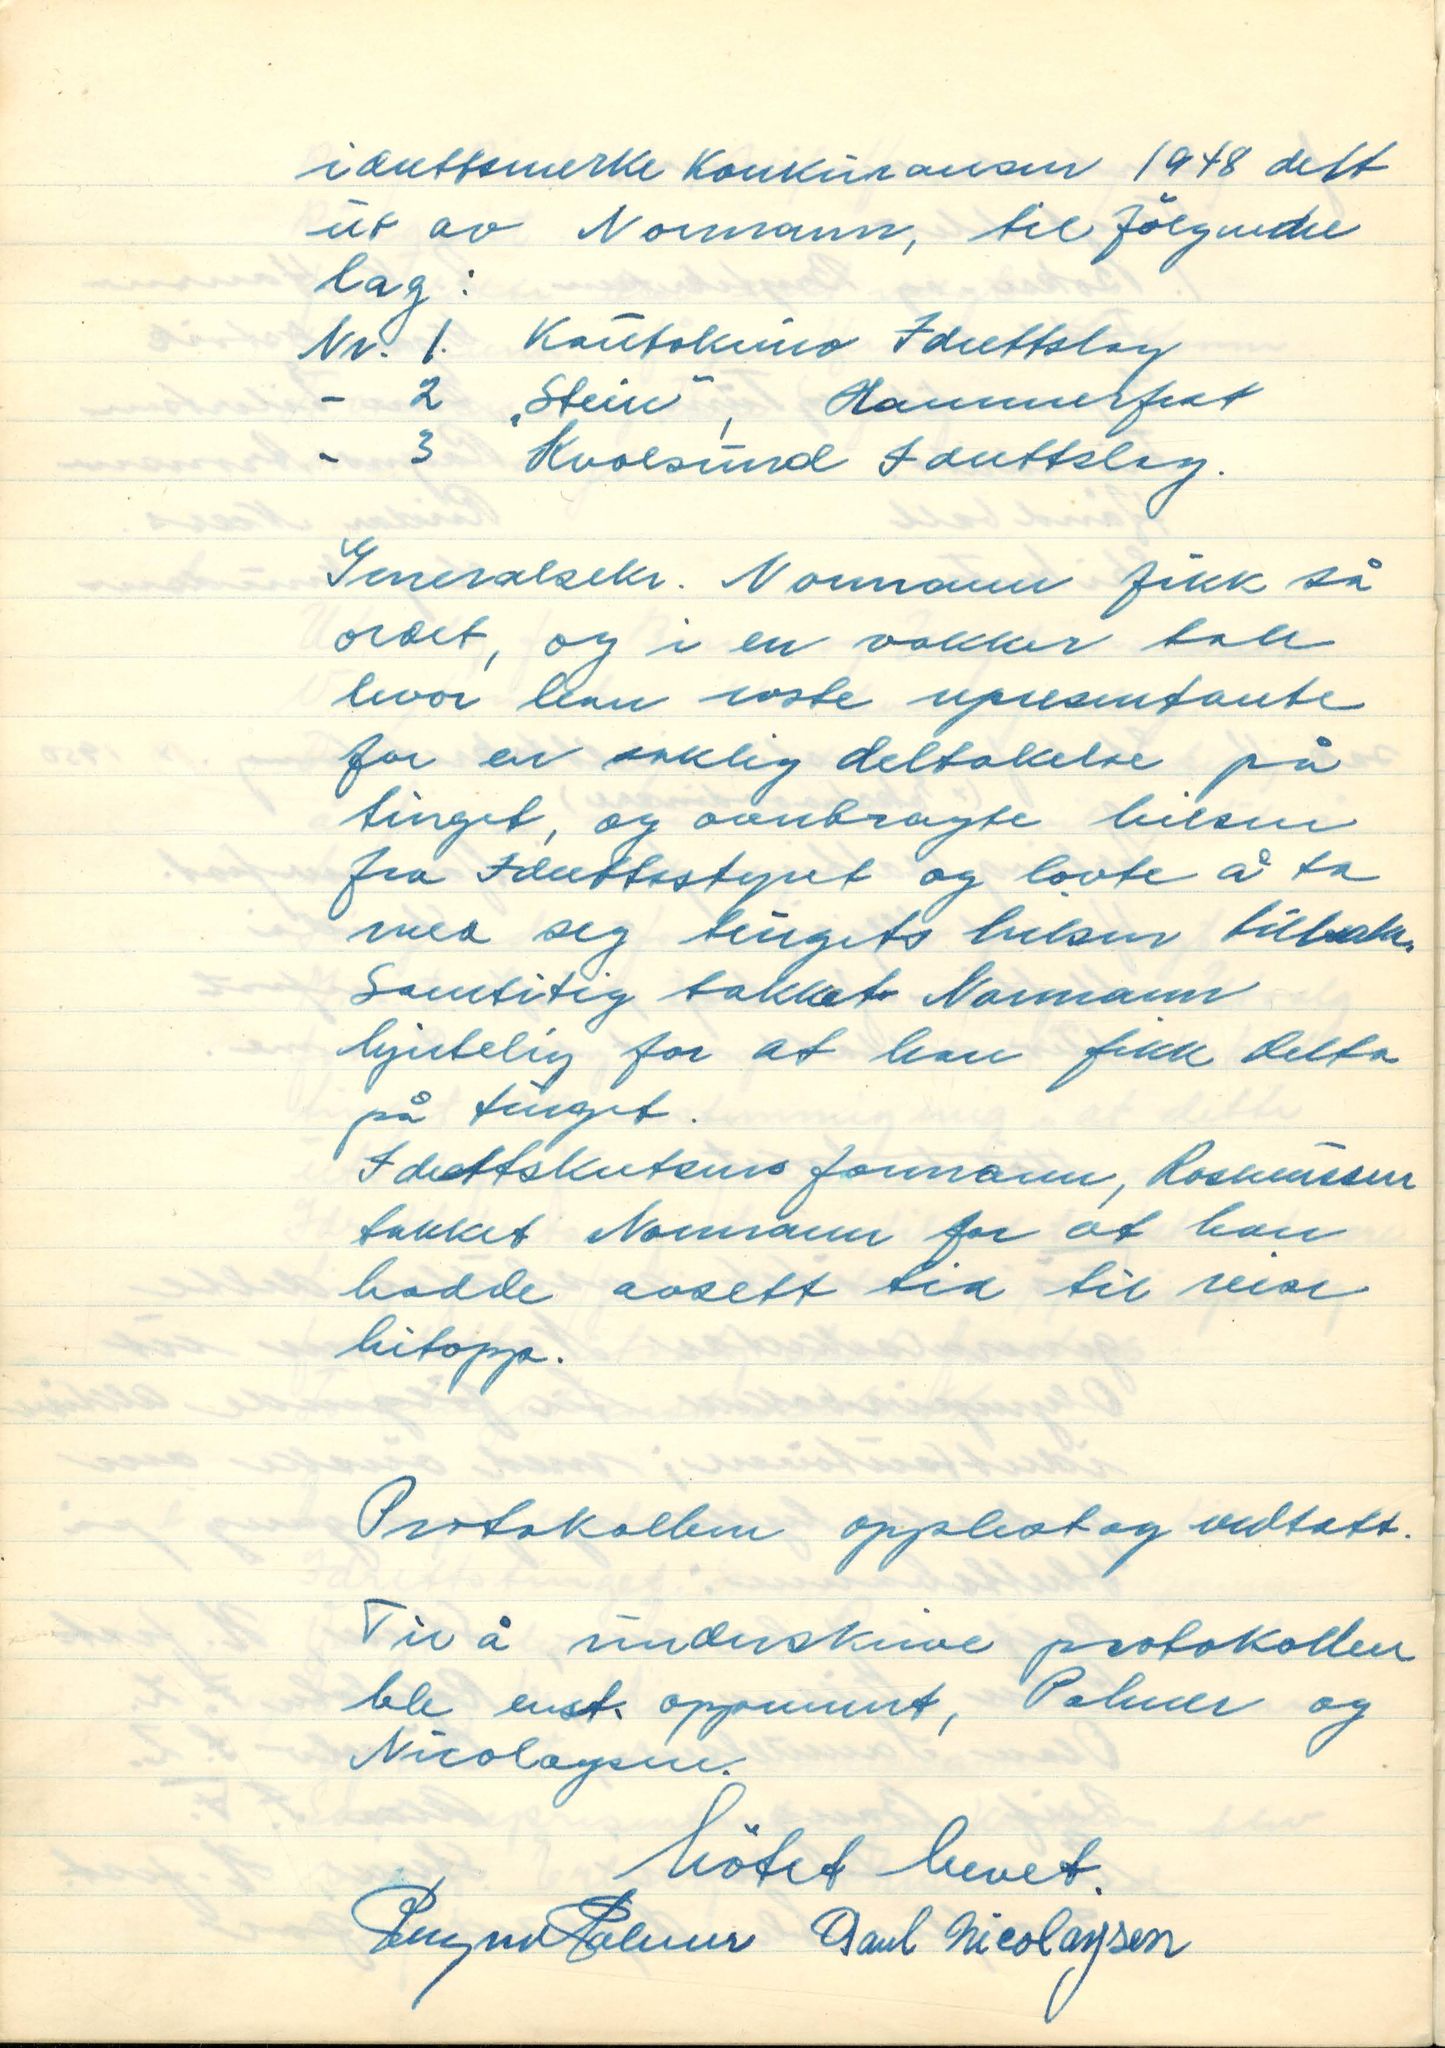 idrettsmerke konkuransen 1948 delt
ut av Normann, til følgende
lag:
Nr. 1. Kautokeino Idrettslag
- 2 "Stein", Hammerfest
- 3 Kvalsund Idrettslag.
Generalsekr. Normann fikk så
ordet, og i en vakker tale
hvor han roste representante
for en saklig deltakelse på
tinget, og ovenbragte hilsen
fra Idrettsstyret og lovte å ta
med seg tingets hilsen tilbake.
Samtitig takket Normann
hjertelig for at han fikk delta
på tinget.
Idrettskretsens formann, Rasmussen
takket Normann for at han
hadde avsett tid til reise
hitopp.
Protokollen opplest og vedtatt.
Til å underskrive protokollen
ble enst. oppnevnt, Palmer og
Nicolaysen.
Mötet hevet.
Palmer Paul Nicolaysen